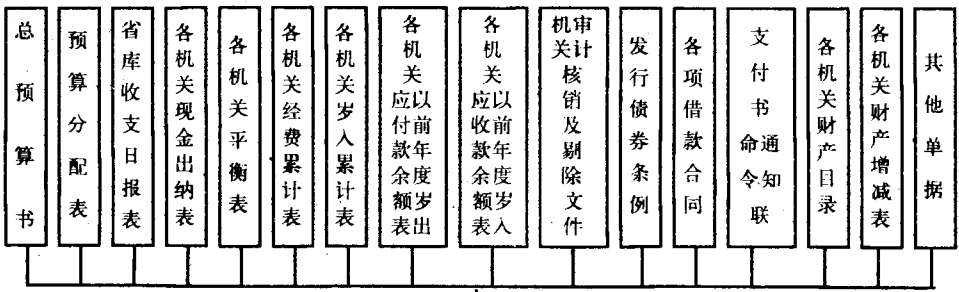 总预算书
预算分配表
省库收支日报表
各机关现金出纳表
各机关平衡表
各机关经费累计表
各机关岁入累计表
各机关以前年度岁出应付款余额表
各机关以前年度岁入应收款余额表
审计机关核销及剔除文件
发行债券条例
各项借款合同
支付书通知命令联
各机关财产目录
各机关财产增减表
其他单据